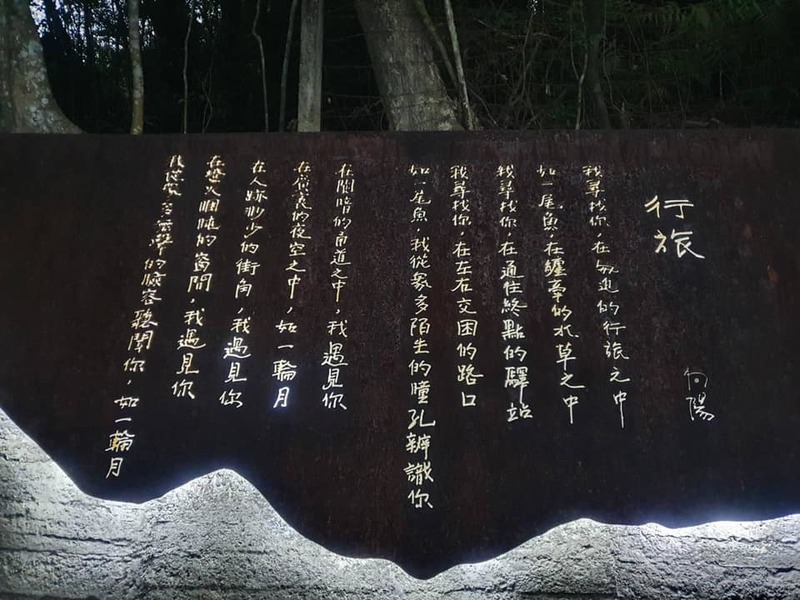 行旅
向陽
我尋找你,在匆迫的行旅之中
如一尾魚,在纏牽的水草之中
我尋找你,在通往終點的驛站
我尋找你,在左右交困的路口
如一尾魚,我從眾多陌生的瞳孔辨識你
在暗的甬道之中,我遇見你
在廣袤的夜空之中,如一輪月
在人跡渺少的街角,我遇見你
在燈火的窗間,我遇見你
聲的臉容聽聞你,如一輪月